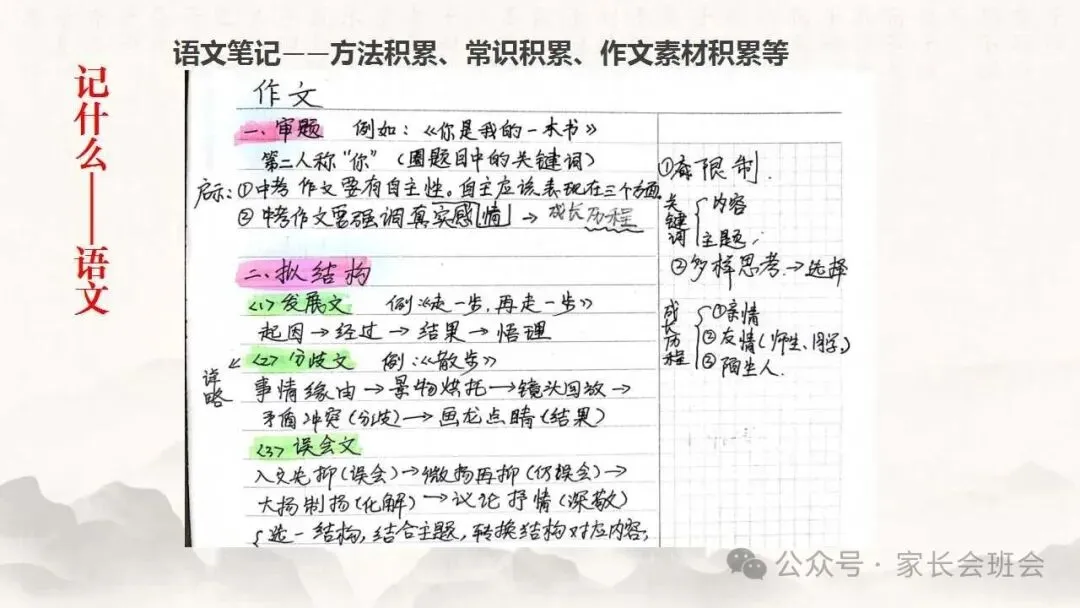 语文笔记——方法积累、常识积累、作文素材积累等
记什么——语文
作文
一、审题 例如：《你是我的一本书》
第二人称“你”（圈题目中的关键词）
启示：①中考作文要有自主性。自主应该表现在三个方面
②中考作文要强调真实感情 → 成长历程
二、拟结构
<1> 发展文 例《走一步，再走一步》
起因→经过→结果→悟理
<2> 分歧文 例：《散步》
详略
事情缘由→景物烘托→镜头回放→
矛盾冲突（分歧）→画龙点睛（结果）
<3> 误会文
入文先抑（误会）→微扬再抑（仍误会）→
大扬制扬（化解）→议论抒情（深敬）
选一结构，结合主题，转换结构对应内容；
①有限制.
关键词
内容
主题；
②多样思考→选择
成长历程
①亲情
②友情（师生、同学）
③陌生人.
公众号·家长会班会